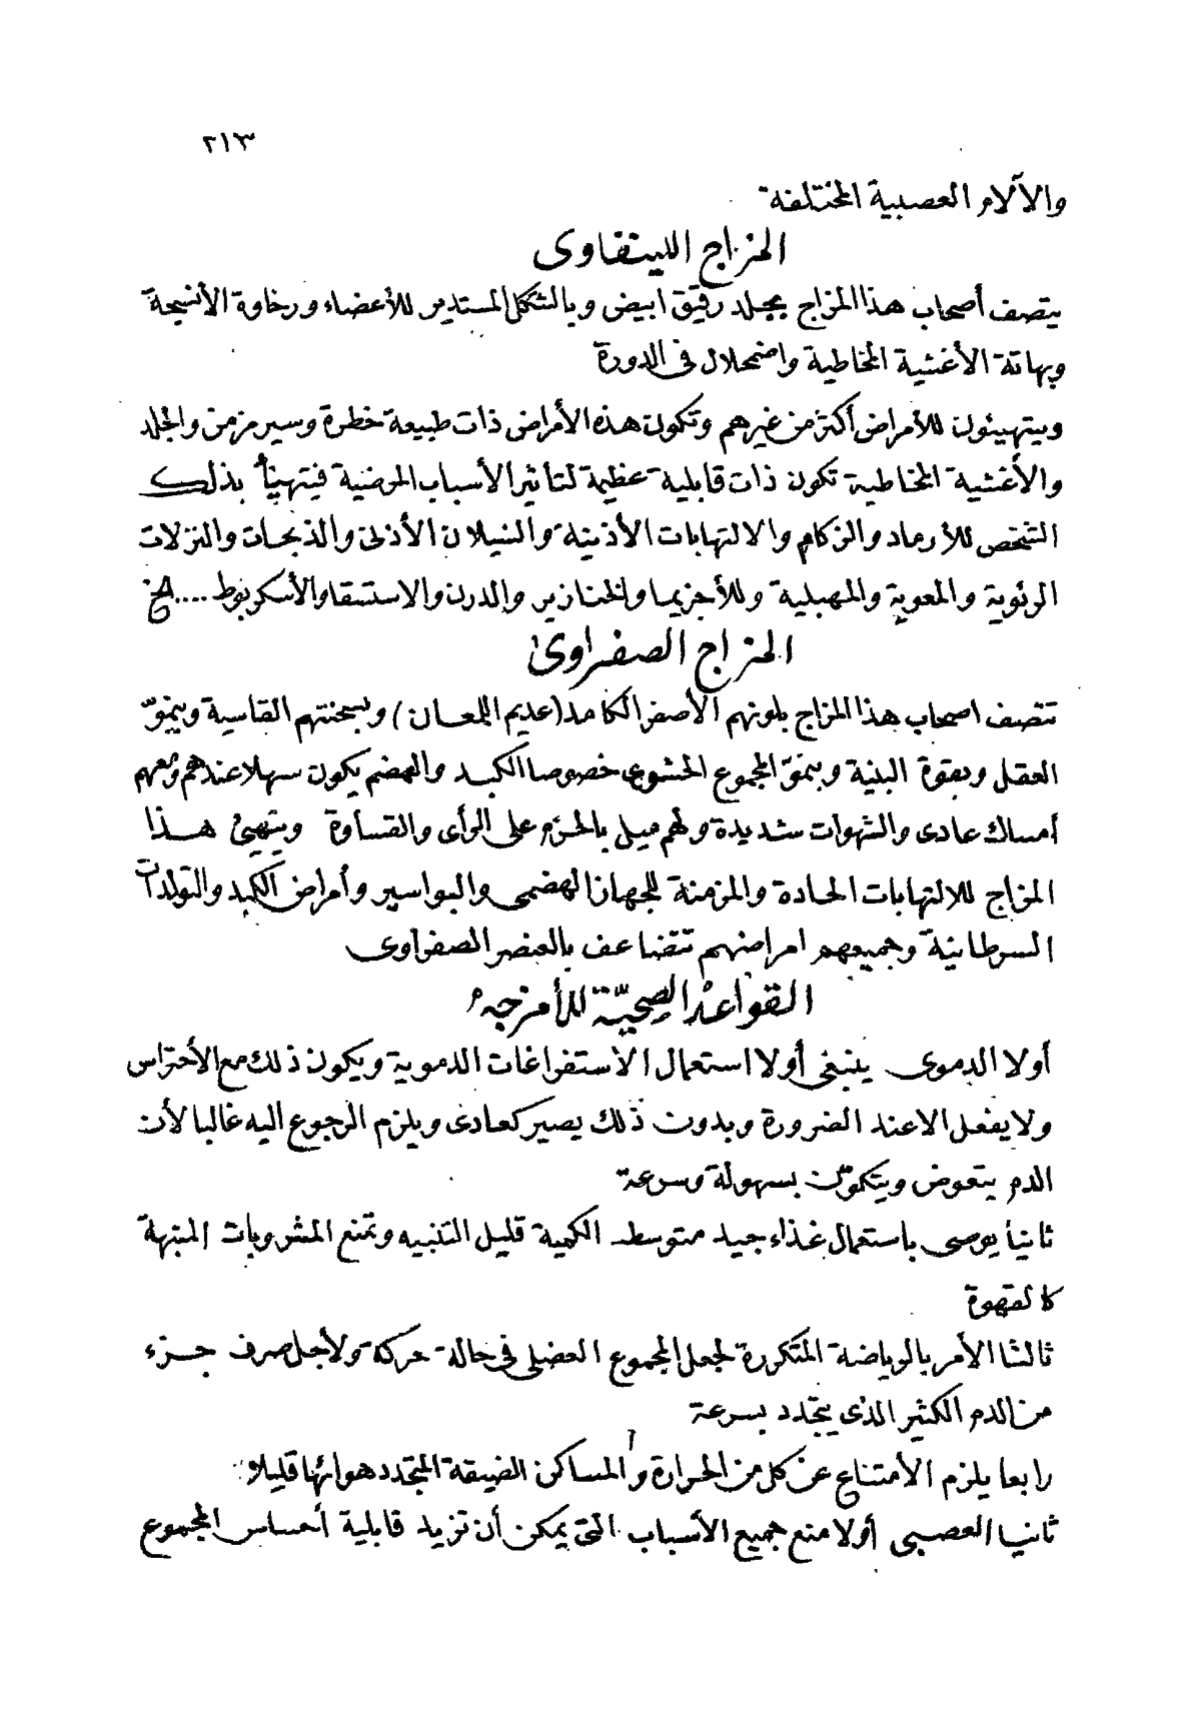 ٢١٣
والآلام العصبية المختلفة
المزاج اللينفاوى
يتصف أصحاب هذا المزاج بجلد رقيق ابيض وبالشكل المستدير للأعضاء ورخاوة الأنسجة
وبهاتة الأغشية المخاطية واضمحلال فى الدورة
ويتهيئون للأمراض أكثر من غيرهم وتكون هذه الأمراض ذات طبيعة خطرة وسير مزمن والجلد
والأغشية المخاطية تكون ذات قابلية عظيمة لتأثير الأسباب المرضية فيتهيأ بذلك
الشخص للأرماد والزكام والالتهابات الأذنية والسيلان الأذنى والذبحات والنزلات
الرئوية والمعوية والمهبلية وللأجزيما والخنازير والدرن والاستسقا والأسكربوط .... الخ
المزاج الصفراوى
تتصف اصحاب هذا المزاج بلونهم الأصفر الكامد (عديم اللمعان) وبسحنتهم القاسية وبنموّ
العقل وبقوة البنية وبنموّ المجموع الحشوى خصوصا الكبد والهضم يكون سهلا عندهم ومعهم
أمساك عادى والشهوات شديدة ولهم ميل بالحزم على الرأى والقسأوة ويتهيئ هذا
المزاج للالتهابات الحادة والمزمنة للجهاز الهضمى والبواسير وأمراض الكبد والتولدات
السرطانية وجميعهم امراضهم تتضاعف بالعنصر الصفراوى
القواعد الصحيّة للأمزجه
أولا الدموى ينبغى أولا استعمال الاستفراغات الدموية ويكون ذلك مع الأحتراس
ولا يفعل الا عند الضرورة وبدون ذلك يصير كعادى ويلزم الرجوع اليه غالبا لأن
الدم يتعوض ويتكوّن بسهولة وسرعة
ثانيا يوصى باستعمال غذاء جيد متوسط الكمية قليل التنبيه وتمنع المشروبات المنبهة
كالقهوة
ثالثا الأمر بالرياضة المتكررة لجعل المجموع العضلى فى حالة حركة ولأجل صرف جزء
من الدم الكثير الذى يتجدد بسرعة
رابعا يلزم الأمتناع عن كل من الحرارة والمساكن الضيقة المتجدد هوائها قليلا
ثانيا العصبى أولا منع جميع الأسباب التى يمكن أن تزيد قابلية أحساس المجموع